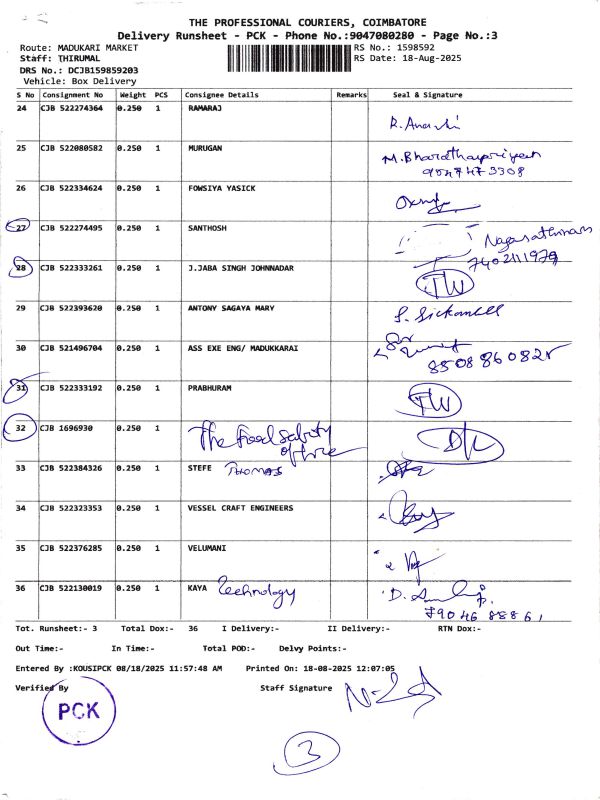 THE PROFESSIONAL COURIERS, COIMBATORE
Delivery Runsheet - PCK - Phone No.:9047080280 - Page No.:3
Route: MADUKARI MARKET RS No.: 1598592
Staff: THIRUMAL RS Date: 18-Aug-2025
DRS No.: DCJB159859203
Vehicle: Box Delivery
S No Consignment No Weight PCS Consignee Details Remarks Seal & Signature
24 CJB 522274364 0.250 1 RAMARAJ
25 CJB 522080582 0.250 1 MURUGAN
26 CJB 522334624 0.250 1 FOWSIYA YASICK
27 CJB 522274495 0.250 1 SANTHOSH
7402111979
28 CJB 522333261 0.250 1 J.JABA SINGH JOHNNADAR TW
29 CJB 522393620 0.250 1 ANTONY SAGAYA MARY
30 CJB 521496704 0.250 1 ASS EXE ENG/ MADUKKARAI
31 CJB 522333192 0.250 1 PRABHURAM TW
32 CJB 1696930 0.250 1 The Food Safity D/L
33 CJB 522384326 0.250 1 STEFE THOMAS
34 CJB 522323353 0.250 1 VESSEL CRAFT ENGINEERS
35 CJB 522376285 0.250 1 VELUMANI
36 CJB 522130019 0.250 1 KAYA Technology
Tot. Runsheet:- 3 Total Dox:- 36 I Delivery:- II Delivery:- RTN Dox:-
Out Time:- In Time:- Total POD:- Delvy Points:-
Entered By :KOUSIPCK 08/18/2025 11:57:48 AM Printed On: 18-08-2025 12:07:05
Verified By Staff Signature
PCK
3